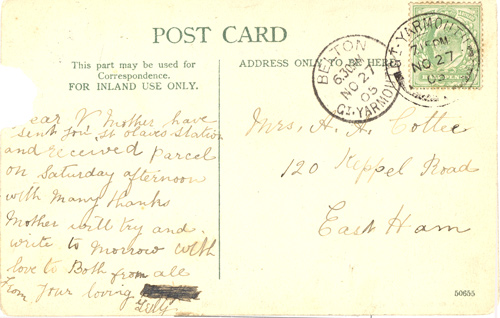 POST CARD
This part may be used for
Correspondence.
FOR INLAND USE ONLY.
ear V Mother have
sent you St olaves Station
and received parcel
on Saturday afternoon
with many thanks
Mother will try and
write to morrow with
love to Both from all
From your loving
Lily
ADDRESS ONLY TO BE HERE
BELTON
6.30PM
NO 27
05
GT. YARMOUTH
GT. YARMOUTH
7.15PM
NO 27
05
Mrs. H. A. Cottee
120 Keppel Road
East Ham
50655